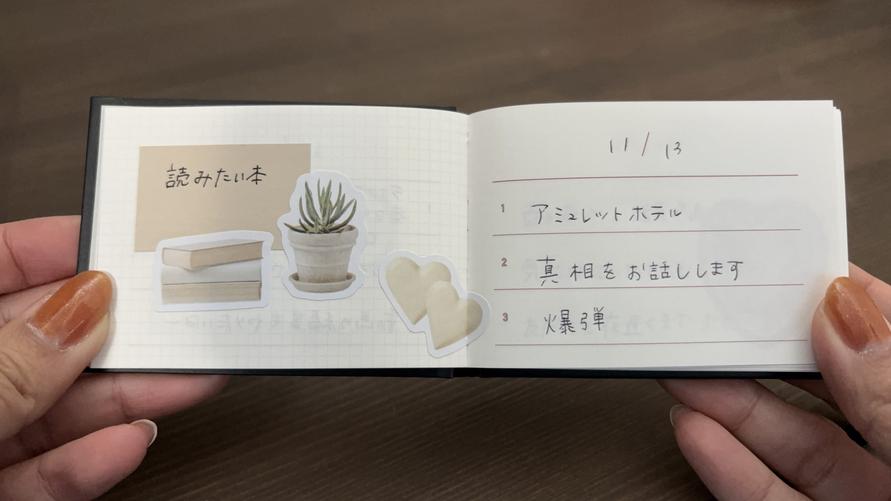 読みたい本
11/13
1 アミュレットホテル
2 真相をお話しします
3 爆弾